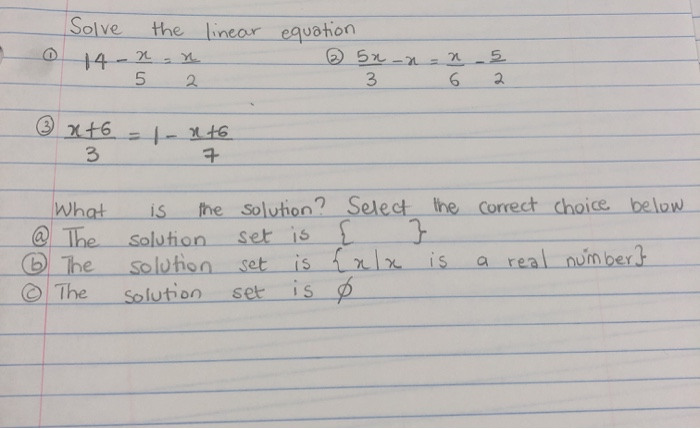 Solve the linear equation
① 14 - x/5 = x/2 ② 5x/3 - x = x/6 - 5/2
③ x+6/3 = 1 - x+6/7
What is the solution? Select the correct choice below
ⓐ The solution set is { }
ⓑ The solution set is {x|x is a real number}
ⓒ The solution set is ∅